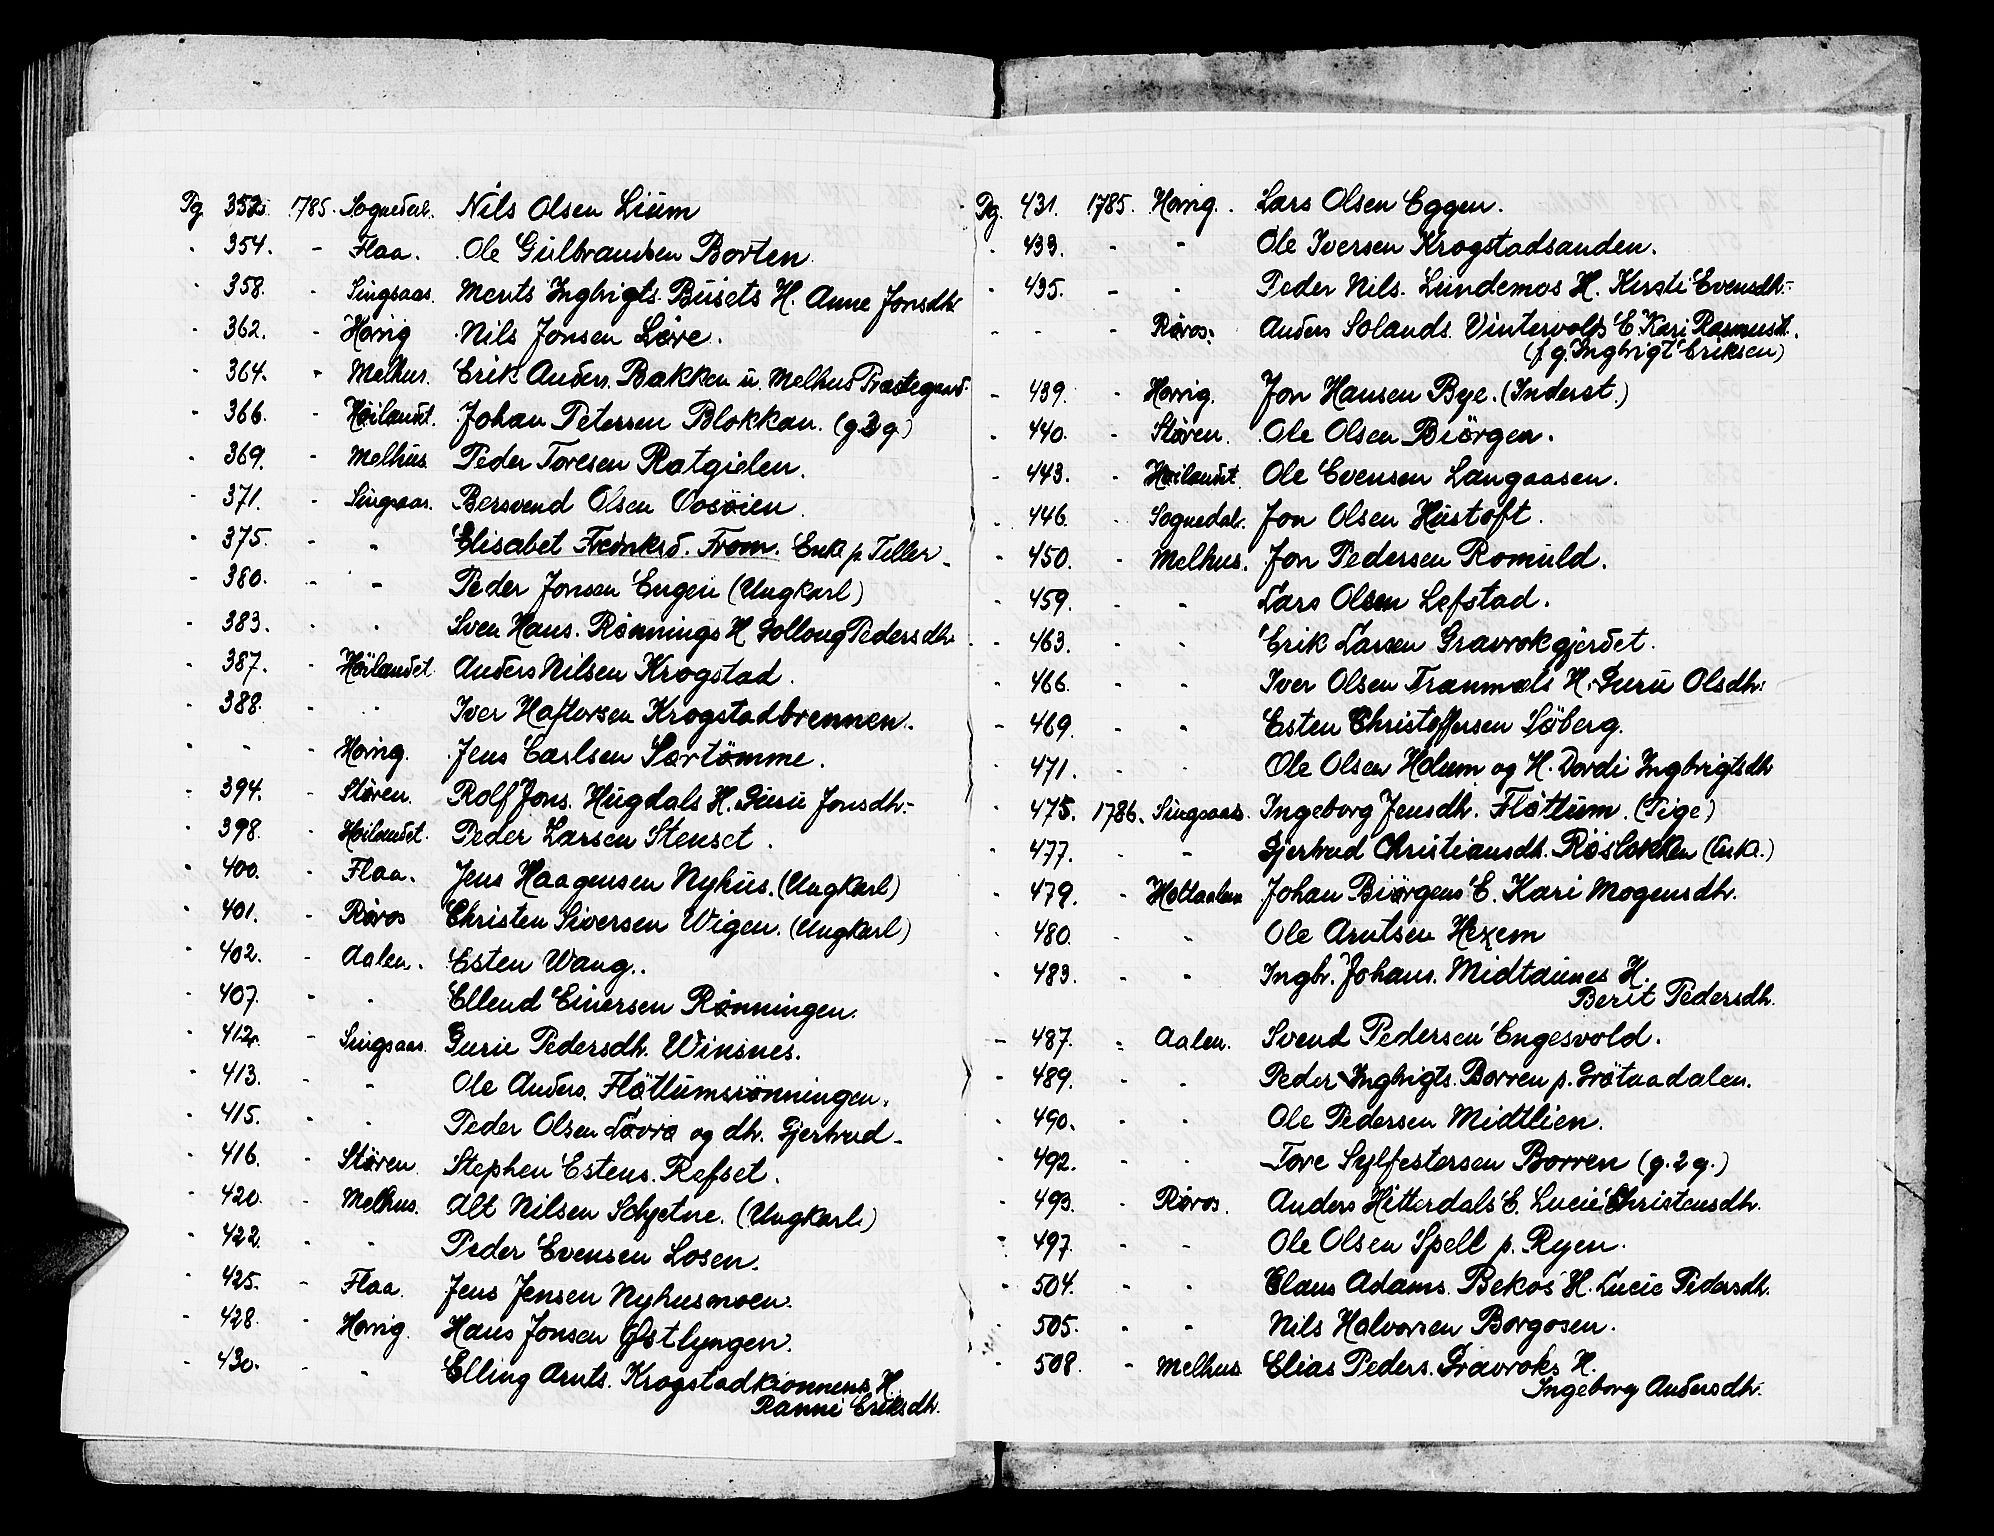 Pg. 352. 1785. Sognedal. Nils Olsen Lium
- 354. - Flaa. Ole Gulbrandsen Borten.
- 358. - Singsaas. Ments Ingbrigts. Busets H. Anne Jonsdh.
- 362. - Horrig Nils Jonsen Løre.
- 364. - Melhus. Erik Anders. Bakken u. Melhus Præstegaard.
- 366. - Høilandet. Johan Petersen Blokkan. (g 2 g)
- 369. - Melhus. Peder Toresen Ratgielen.
- 371. - Singsaas. Bersvend Olsen Vosøien.
- 375. - - Elisabet Fredriksd. From. Enk. p. Teller.
- 380. - - Peder Jonsen Engen (Ungkarl)
- 383. - - Sven Hans. Rønnings H Gollaug Pedersdh.
- 387. - Høilandet. Anders Nilsen Krogstad.
- 388. - - Iver Haftorsen Krogstadbrennen.
- - - Horrig. Jens Carlsen Sørtømme.
- 394. - Støren. Rolf Jons. Hugdals H. Guru Jonsdh.
- 398. - Høilandet. Peder Larsen Stenset.
- 400. - Flaa. Jens Haagensen Nyhus. (Ungkarl)
- 401. - Røros Christen Siversen Wigen. (Ungkarl)
- 402. - Aalen. Esten Wang.
- 407. - - Ellend Einersen Rønningen.
- 412. - Singsaas. Guru Pedersdh. Winsnes.
- 413. - - Ole Anders. Fløttumsrönningen.
- 415. - - Peder Olsen Løvra og dh. Gjertrud.
- 416. - Støren. Stephen Estens. Refset.
- 420. - Melhus. Alt Nilsen Schjetne. (Ungkarl)
- 422. - - Peder Evensen Losen.
- 425. - Flaa. Jens Jensen Nyhusmoen.
- 428. - Horrig. Hans Jonsen Østlyngen.
- 430. - - Elling Arnts. Krogstadkionnens H.
Ranne Eriksdh.
Pg. 431. 1785. Horrig. Lars Olsen Eggen.
- 433. - - Ole Iversen Krogstadsanden.
- 435. - - Peder Nils. Lundemos H. Kirsti Evensdh.
- - - Røros: Anders Solands. Vintervolds E. Kari Rasmusd.
(f g. Ingbrigt Eriksen)
- 439. - Horrig. Jon Hansen Bye. (Inderst.)
- 440. - Støren. Ole Olsen Biörgen.
- 443. - Høilandet. Ole Evensen Langaasen.
- 446. - Sognedal. Jon Olsen Hustoft.
- 450. - Melhus. Jon Pedersen Romuld.
- 459. - - Lars Olsen Lefstad.
- 463. - - Erik Larsen Gravrokgjerdet.
- 466. - - Iver Olsen Tranmæls H. Guru Olsdh.
- 469. - - Esten Christoffersen Søberg.
- 471. - - Ole Olsen Holum og H. Dordi Ingbrigtsdh
- 475. 1786. Singsaas. Ingeborg Jensdh. Flöttum. (Pige)
- 477. - - Gjertrud Christiansdh. Røslokken (Enk.)
- 479. - Holtaalen Johan Biörgens E. Kari Mogensdh.
- 480. - - Ole Arntsen Hexem
- 483. - - Ingbr. Johans. Midtaunes H.
Berit Pedersdh.
- 487. - Aalen. Svend Pedersen Engesvold.
- 489. - - Peder Ingbrigts. Borren p. Grötaadalen.
- 490. - - Ole Pedersen Midtlien.
- 492. - - Tore Sylfestersen Borren (g. 2 g.)
- 493. - Røros. Anders Hitterdals E. Lucie Christensdh.
- 497. - - Ole Olsen Spell p. Ryen.
- 504. - - Claus Adams. Bekos H. Lucie Pedersdh.
- 505. - - Nils Halvorsen Borgosen.
- 508. - Melhus Elias Peders. Gravroks H.
Ingeborg Andersdh.